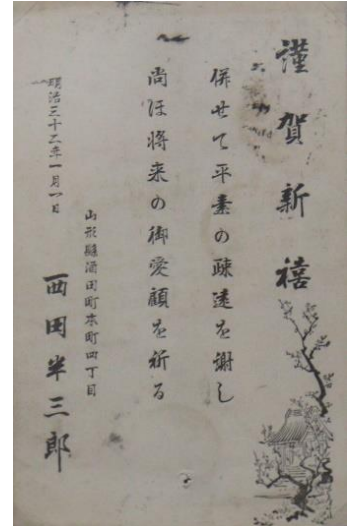 謹賀新禧
併せて平素の疎遠を謝し
尚ほ将来の御愛顧を祈る
明治三十二年一月一日
山形縣酒田町本町四丁目
西田半三郎